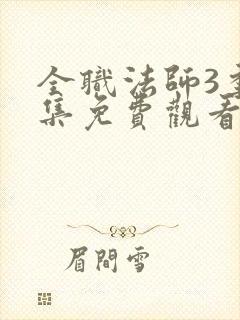 全職法師3季
集免費觀看
眉間雪